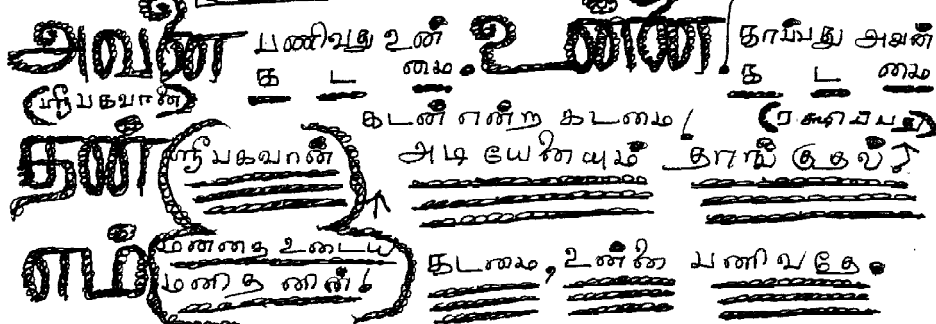 அவன் பணிவது உன் க ட மை. உன்னை காப்பது அவன் க ட மை
(ஸ்ரீபகவான்) கடன் என்ற கடமை!
தன் ஸ்ரீபகவான் அடியேனையும் தாங்குதல்?
எம் மனதை உடைய மனிதனின்! கடமை, உன்னை பணிவதே.